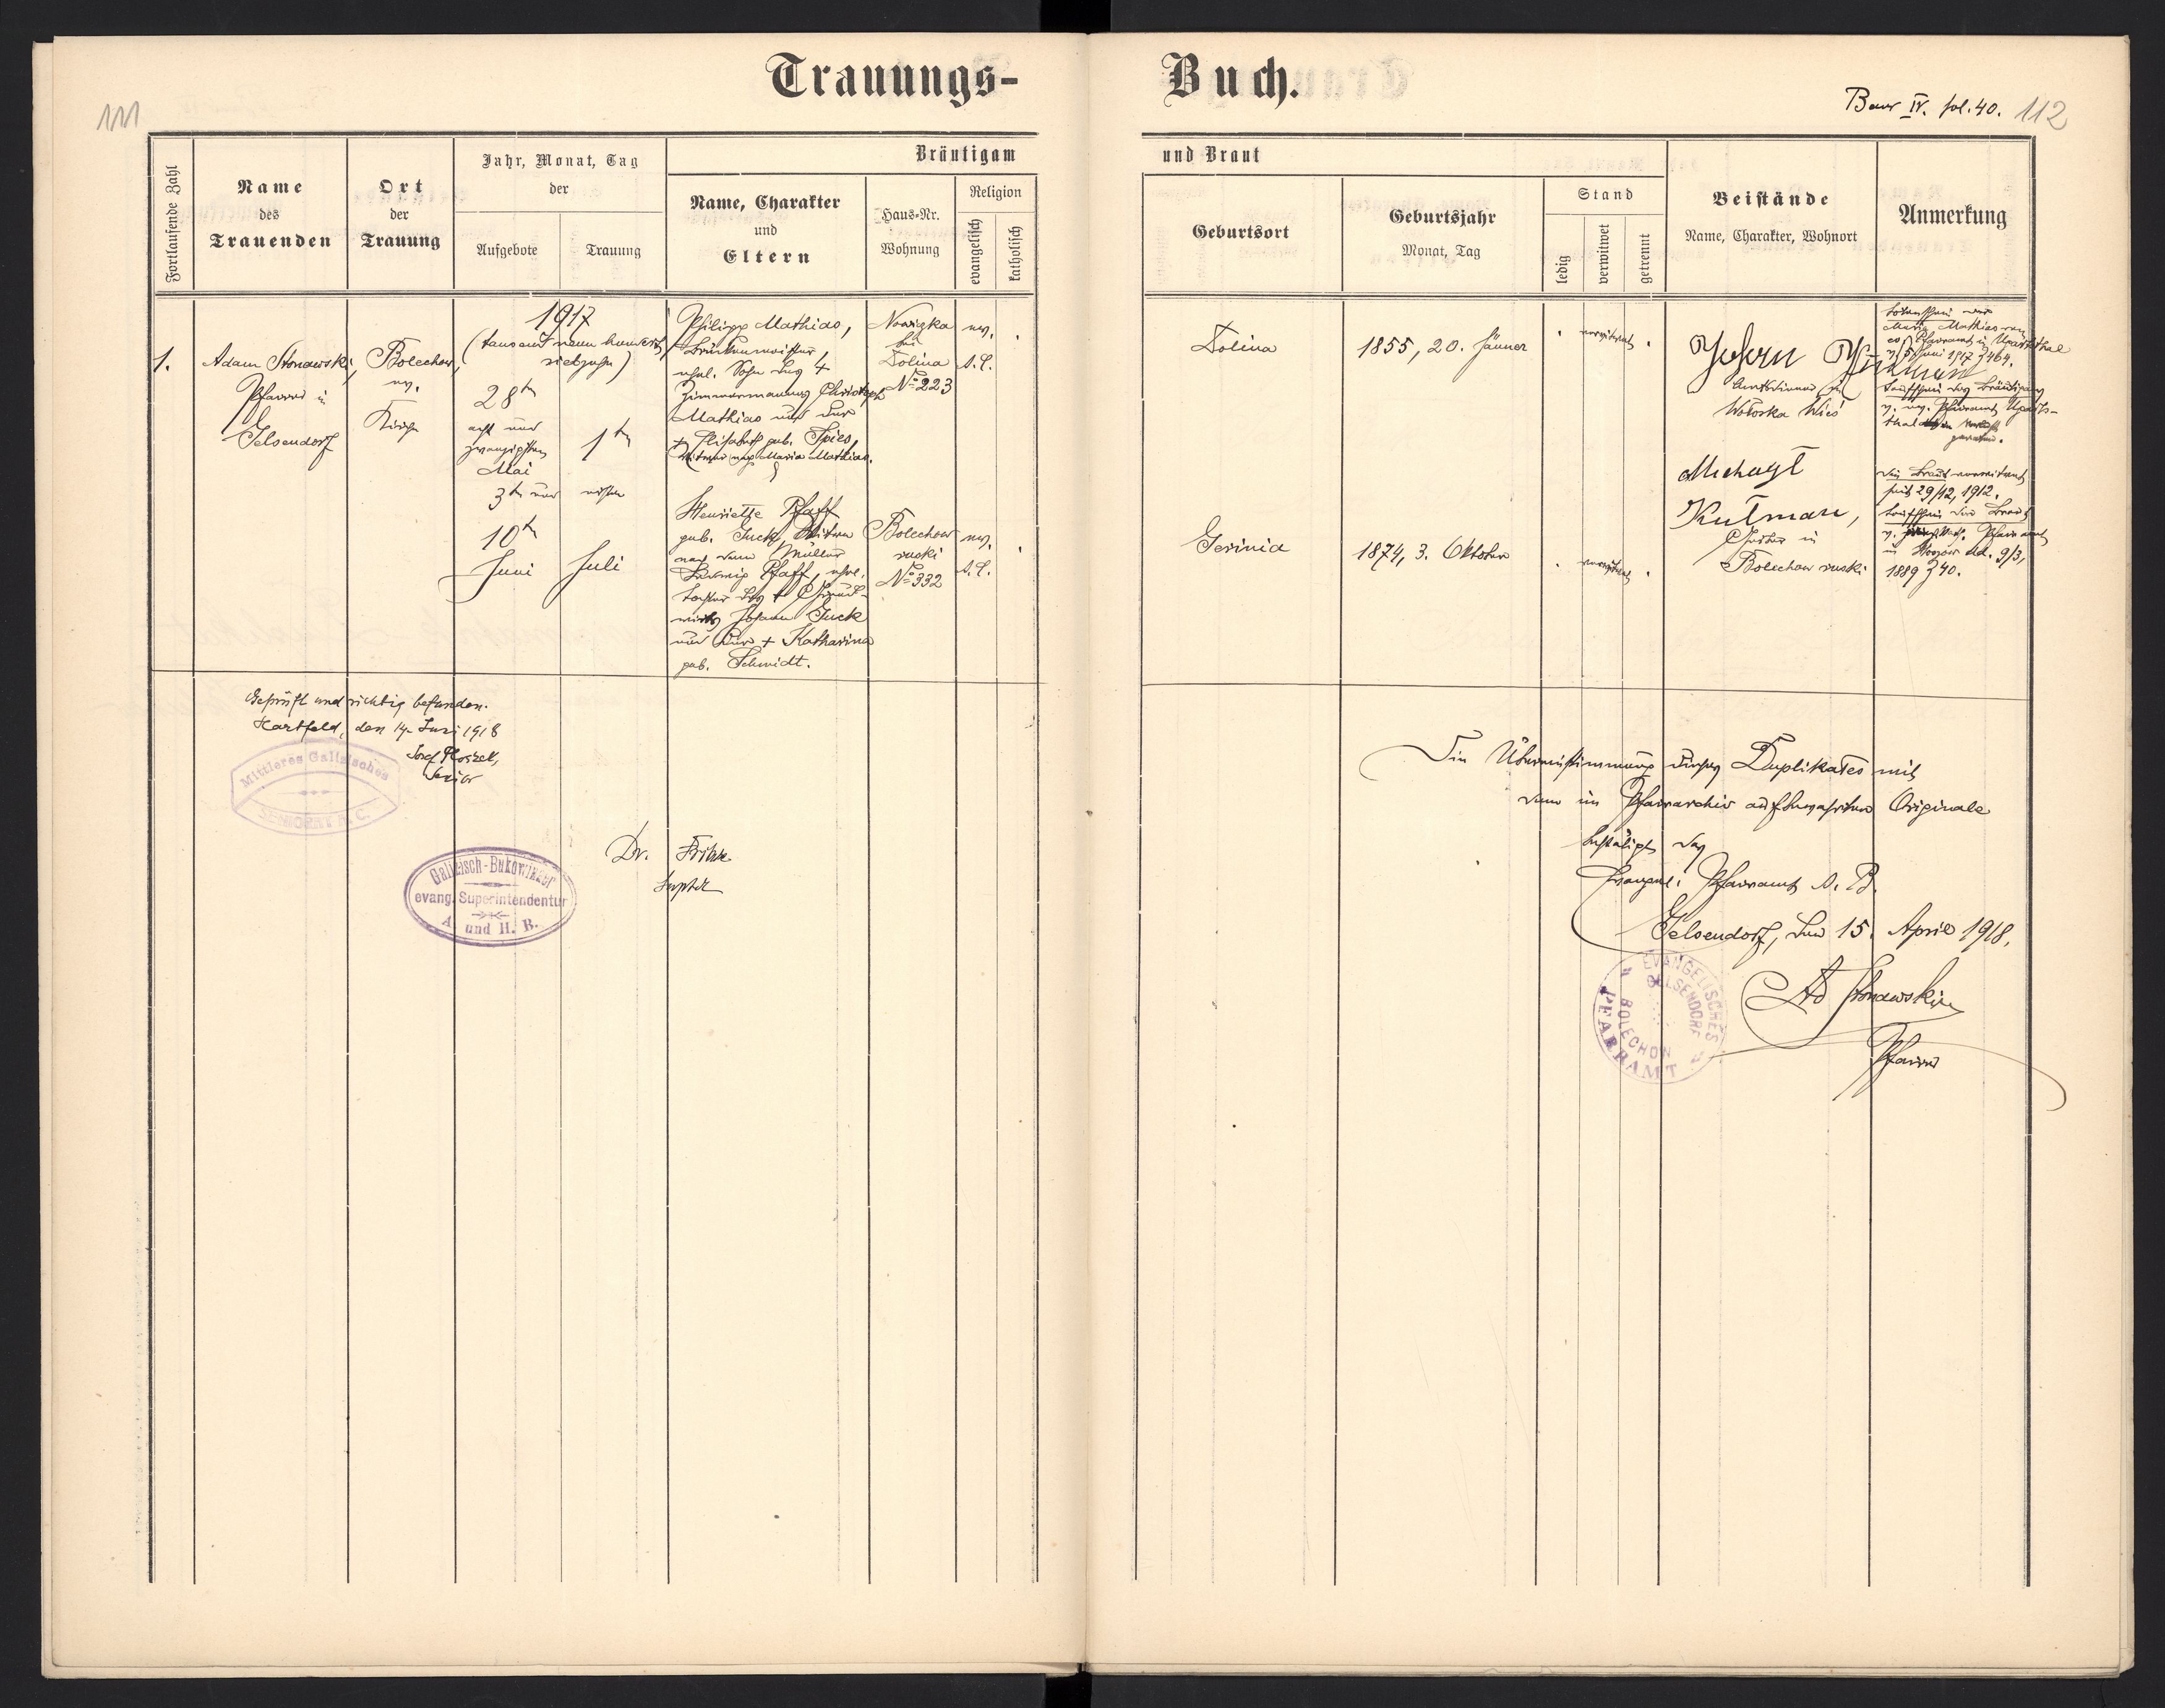 Trauungs-
Buch.
111
Band IV. fol. 40. 112
Fortlaufende Zahl
Name
des
Trauenden
Ort
der
Trauung
Jahr, Monat, Tag
der
Aufgebote
Trauung
Bräutigam
Name, Charakter
und
Eltern
Haus-Nr.
Wohnung
Religion
evangelisch
katholisch
und Braut
Geburtsort
Geburtsjahr
Monat, Tag
Stand
ledig
verwitwet
getrennt
Beistände
Name, Charakter, Wohnort
Anmerkung
1.
Adam Stonawski,
Pfarrer in
Gelsendorf
Bolechow,
ev.
Kirche
1917
(tausend neun hundert
siebzehn)
28ten
acht und
zwanzigsten
Mai
3ten und
10ten
Juni
1ten
ersten
Juli
Philipp Mathias,
Brückenmeister
ehel. Sohn des +
Zimmermannes Christoph
Mathias und der
+ Elisabeth geb. Spies,
Witwer nach Maria Mathias.
Nowiczka
bei
Dolina
No 223
ev.
A.C.
Henriette Pfaff
geb. Juck, Witwe
nach dem Müller
Ludwig Pfaff, ehel.
Tochter des +
Johann Juck
und der + Katharina
geb. Schmidt.
Bolechow
ruski
No 332
ev.
A.C.
Dolina
1855, 20. Jänner
verwitwet
Gerinia
1874, 3. Oktober
verwitwet
Johann
Amtsdiener in
Wołoska Wieś
Michael
Kutman,
in
Bolechow ruski
Totenschein der
Maria Mathias vom
ev. Pfarramt in Ugartsthal
v. 5 Juni 1917 Z 464.
Taufschein des Bräutigams
v. ev. Pfarramt Ugarts-
thal
Die Braut verwitwet
seit 29/12, 1912.
Taufschein der Braut
v. Pfarramt
in dd. 9/3,
1889 Z 40.
Geprüft und richtig befunden.
Hartfeld, den 14. Juni 1918
Josef Ploszek,
Senior
Mittleres Galizisches
SENIORAT A. C.
Galizisch-Bukowinaer
evang. Superintendentur
A. und H. B.
Dr. Fritsche
Suptdt
Die Übereinstimmung dieses Duplikates mit
dem im Pfarrarchiv aufbewahrten Originale
bestätigt das
Evangel. Pfarramt A. B.
Gelsendorf, den 15. April 1918.
EVANGELISCHES
GELSENDORF
BOLECHOW
PFARRAMT
Ad Stonawski
Pfarrer